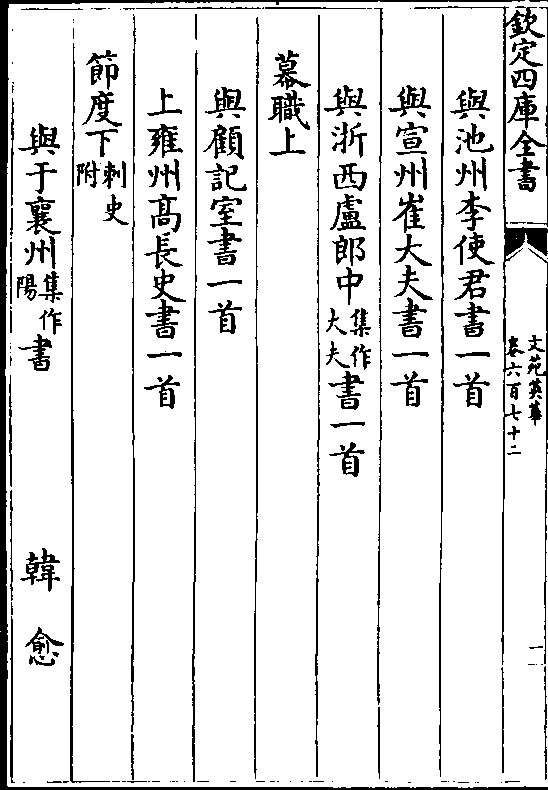 欽定四庫全書
文苑英華
卷六百七十二
與池州李使君書一首
與宣州崔大夫書一首
與浙西盧郎中集作大夫書一首
幕職上
與顧記室書一首
上雍州髙長史書一首
節度下刺史附
與于襄州集作陽書 韓愈